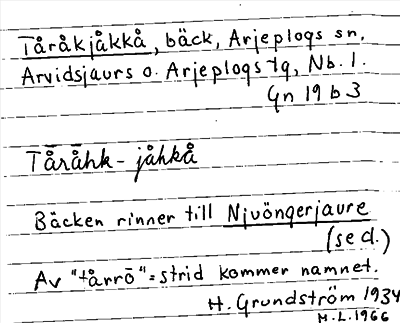 Tåråkjåkkå, bäck, Arjeplogs sn.
Arvidsjaurs o. Arjeplogs tg, Nb. l.
Gn 19 b 3
Tåråhk-jåhkå
Bäcken rinner till Njuöngerjaure
(se d.)
Av "tårrō" = strid kommer namnet.
H. Grundström 1934
M.L. 1966